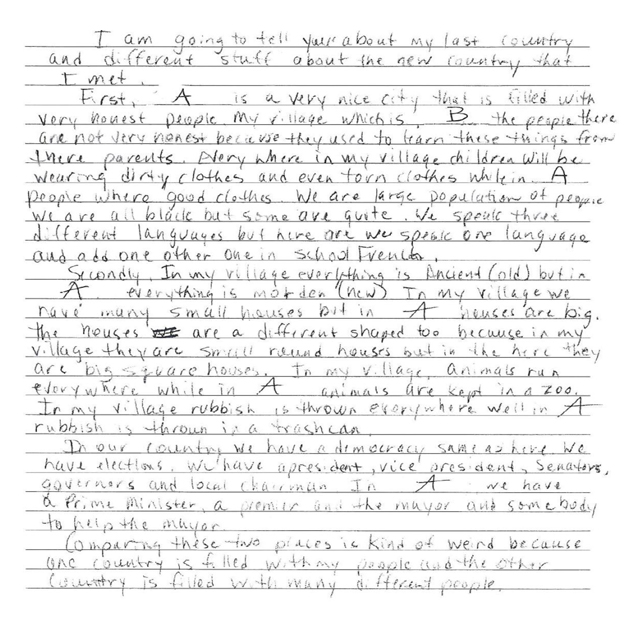 I am going to tell your about my last country
and different stuff about the new country that
I met.
First, A is a very nice city that is filled with
very honest people. My village which is B the people there
are not very honest because they used to learn these things from
there parents. Every where in my village children will be
wearing dirty clothes and even torn clothes while in A
people where good clothes. We are large population of people
we are all black but some are quite. We speak three
different languages but here are we speak one language
and add one other one in school French.
Secondly, In my village everything is Ancient (old) but in
A everything is morden (new) In my village we
have many small houses but in A houses are big.
the houses are a different shaped too because in my
village they are small round houses but in the here they
are big square houses. In my village, animals run
everywhere while in A animals are kept in a zoo.
In my village rubbish is thrown everywhere well in A
rubbish is thrown in a trashcan.
In our country we have a democracy same as here. We
have elections. We have a president, vice president, Senators,
governors and local chairman In A we have
a Prime Minister, a premier and the mayor and somebody
to help the mayor.
Comparing these two places is kind of weird because
one country is filled with my people and the other
country is filled with many different people.